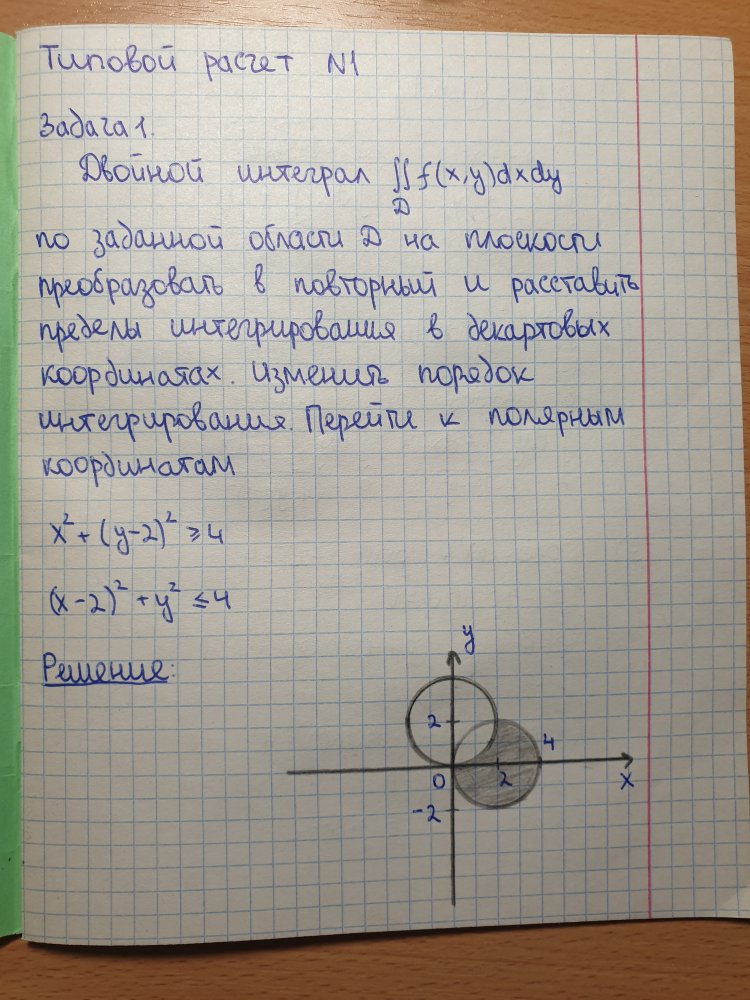 Типовой расчет N1
Задача 1.
Двойной интеграл ∬f(x,y)dxdy
D
по заданной области D на плоскости
преобразовать в повторный и расставить
пределы интегрирования в декартовых
координатах. Изменить порядок
интегрирования. Перейти к полярным
координатам
x²+(y-2)²≥4
(x-2)²+y²≤4
Решение:
y
2
4
0
2
x
-2